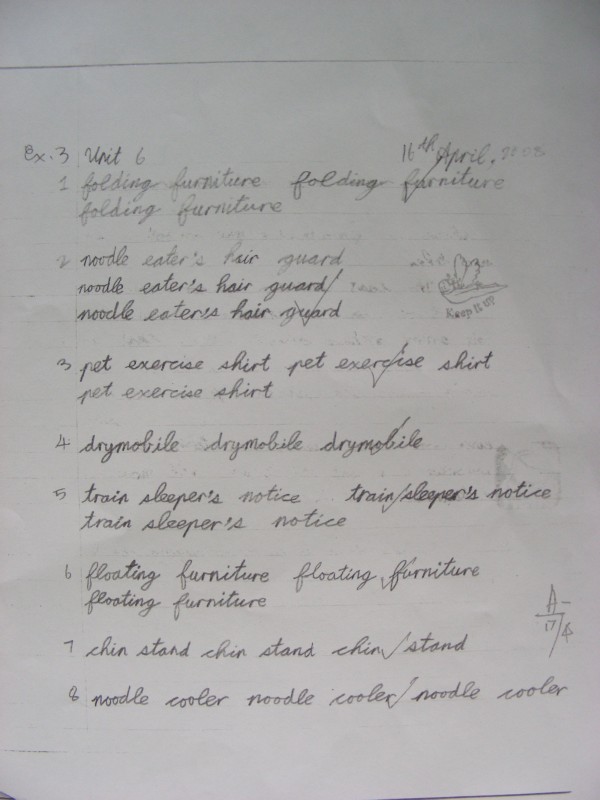 Ex. 3 Unit 6 16th April. 2008
1 folding furniture folding furniture
folding furniture
2 noodle eater's hair guard
noodle eater's hair guard
noodle eater's hair guard
Keep it up
3 pet exercise shirt pet exercise shirt
pet exercise shirt
4 drymobile drymobile drymobile
5 train sleeper's notice train sleeper's notice
train sleeper's notice
6 floating furniture floating furniture
floating furniture
A-
17/4
7 chin stand chin stand chin stand
8 noodle cooler noodle cooler noodle cooler